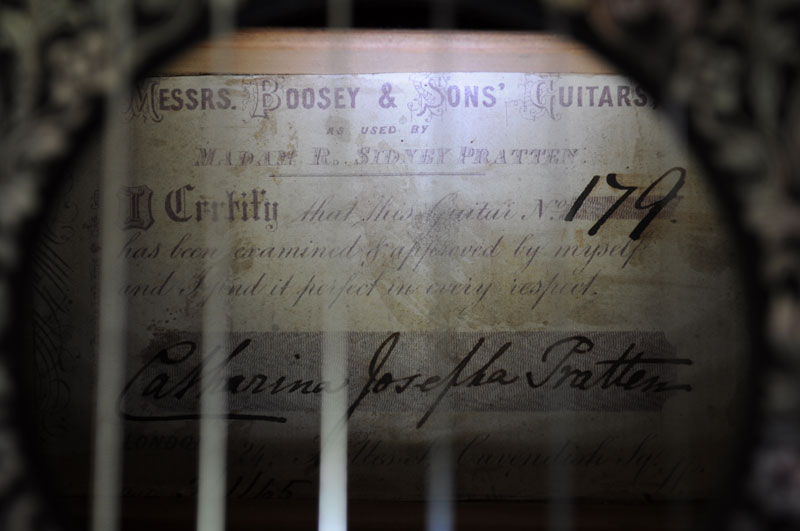 MESSRS. BOOSEY & SONS' GUITARS,
AS USED BY
MADAM R. SIDNEY PRATTEN.
I Certify that this Guitar No. 179
has been examined & approved by myself
and I find it perfect in every respect.
Catharina Josepha Pratten
LONDON 24, Holles St Cavendish Sq.